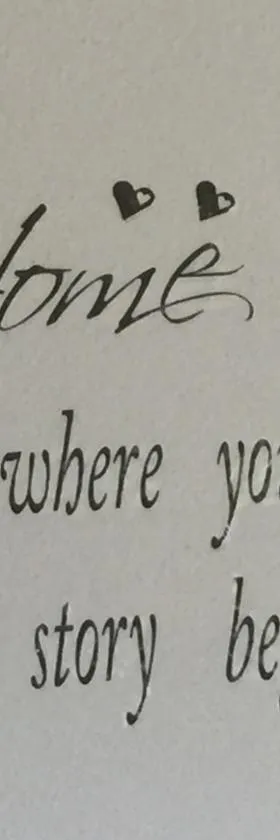 ome
where yo
story be